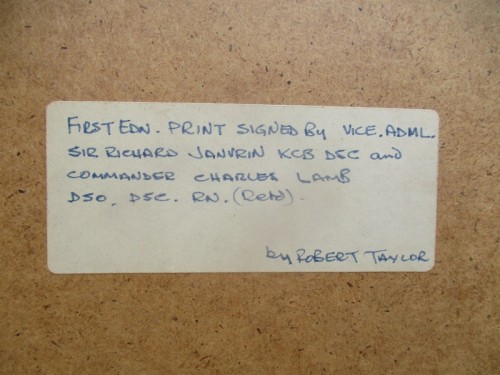 FIRST EDN. PRINT SIGNED By VICE. ADML.
SIR RICHARD JANVRIN KCB DSC and
COMMANDER CHARLES LAMB
DSO, DSC. RN. (Retd).
by ROBERT TAYLOR